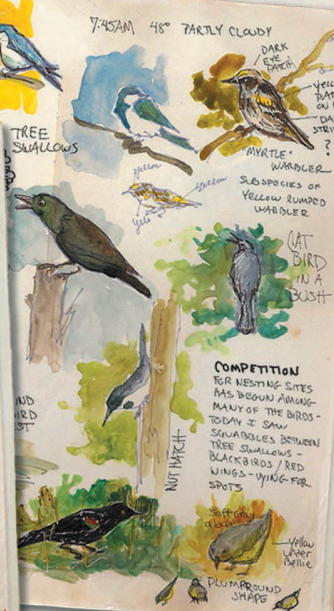 7:45AM 48° PARTLY CLOUDY
DARK
EYE
PATCH
TREE
SWALLOWS
YELL
PAT
DA
STR
?
"MYRTLE" WARBLER
SUBSPECIES OF
YELLOW RUMPED
WARBLER
Yellow
Yellow
CAT
BIRD
IN A
BUSH
COMPETITION
FOR NESTING SITES
HAS BEGUN AMONG
MANY OF THE BIRDS-
TODAY I SAW
SQUABBLES BETWEEN
TREE SWALLOWS -
BLACKBIRDS / RED
WINGS - VYING FOR
SPOTS
NUT HATCH
ND
IRD
ST
Soft gray
Yellow
under
Bellie
PLUMP ROUND
SHAPE